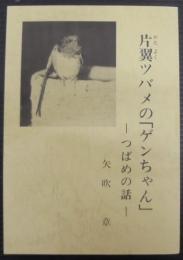 片翼ツバメの「ゲンちゃん」
―つばめの話―
矢吹章